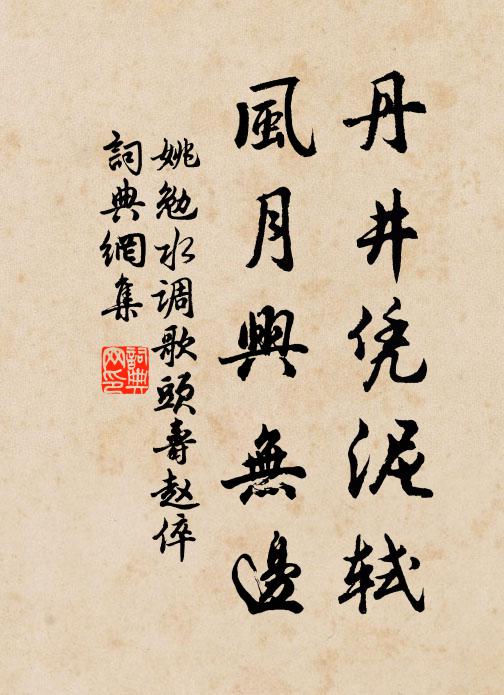 丹井凭泥轼
風月興無邊
姚勉水调歌頭壽赵倅
詞典網集
詞典网印